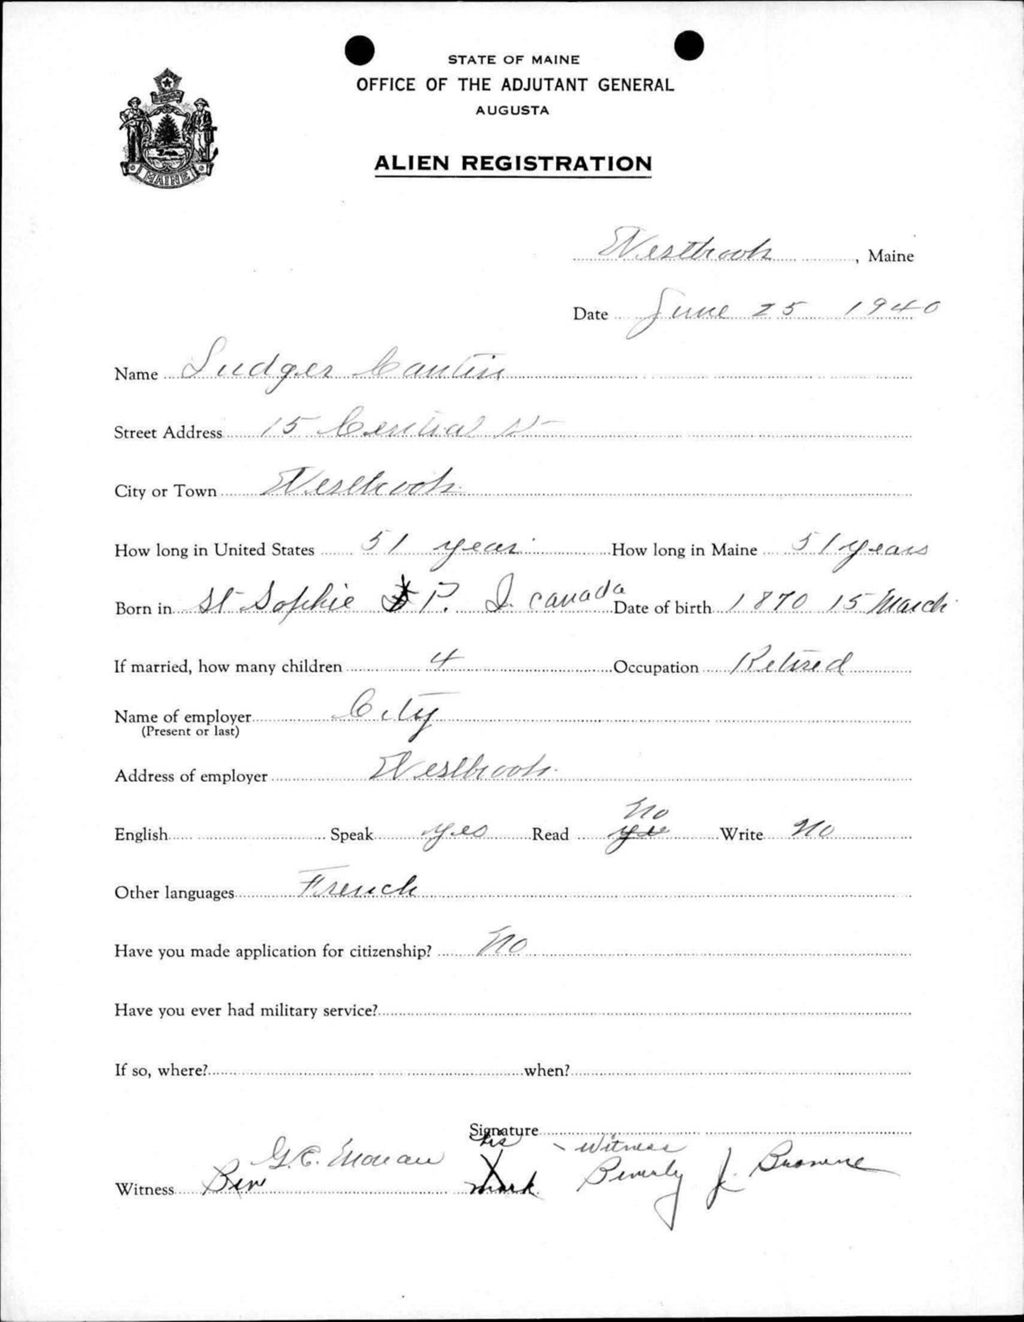 STATE OF MAINE
OFFICE OF THE ADJUTANT GENERAL
AUGUSTA
MAINE
ALIEN REGISTRATION
Westbrook, Maine
Date June 25 1940
Name Ludger Cantin
Street Address 15 Central St
City or Town Westbrook
How long in United States 51 year How long in Maine 51 years
Born in St Sophie P. Q. Canada Date of birth 1870 15 March
If married, how many children 4 Occupation Retired
Name of employer City
(Present or last)
Address of employer Westbrook
English Speak yes Read yes No Write No
Other languages French
Have you made application for citizenship? No
Have you ever had military service?
If so, where? when?
Signature
his X mark
Witness G. E. Ben
witness Beverly J. Browne